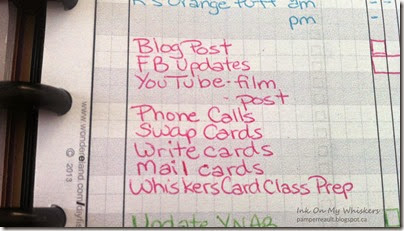 Orange Puff am
pm
Blog Post
FB Updates
YouTube-film
- post
Phone Calls
Swap Cards
Write cards
Mail cards
Whiskers Card Class Prep
Update YNAB
© 2013 www.wondereland.com/
Ink On My Whiskers
pamperresult.blogspot.ca